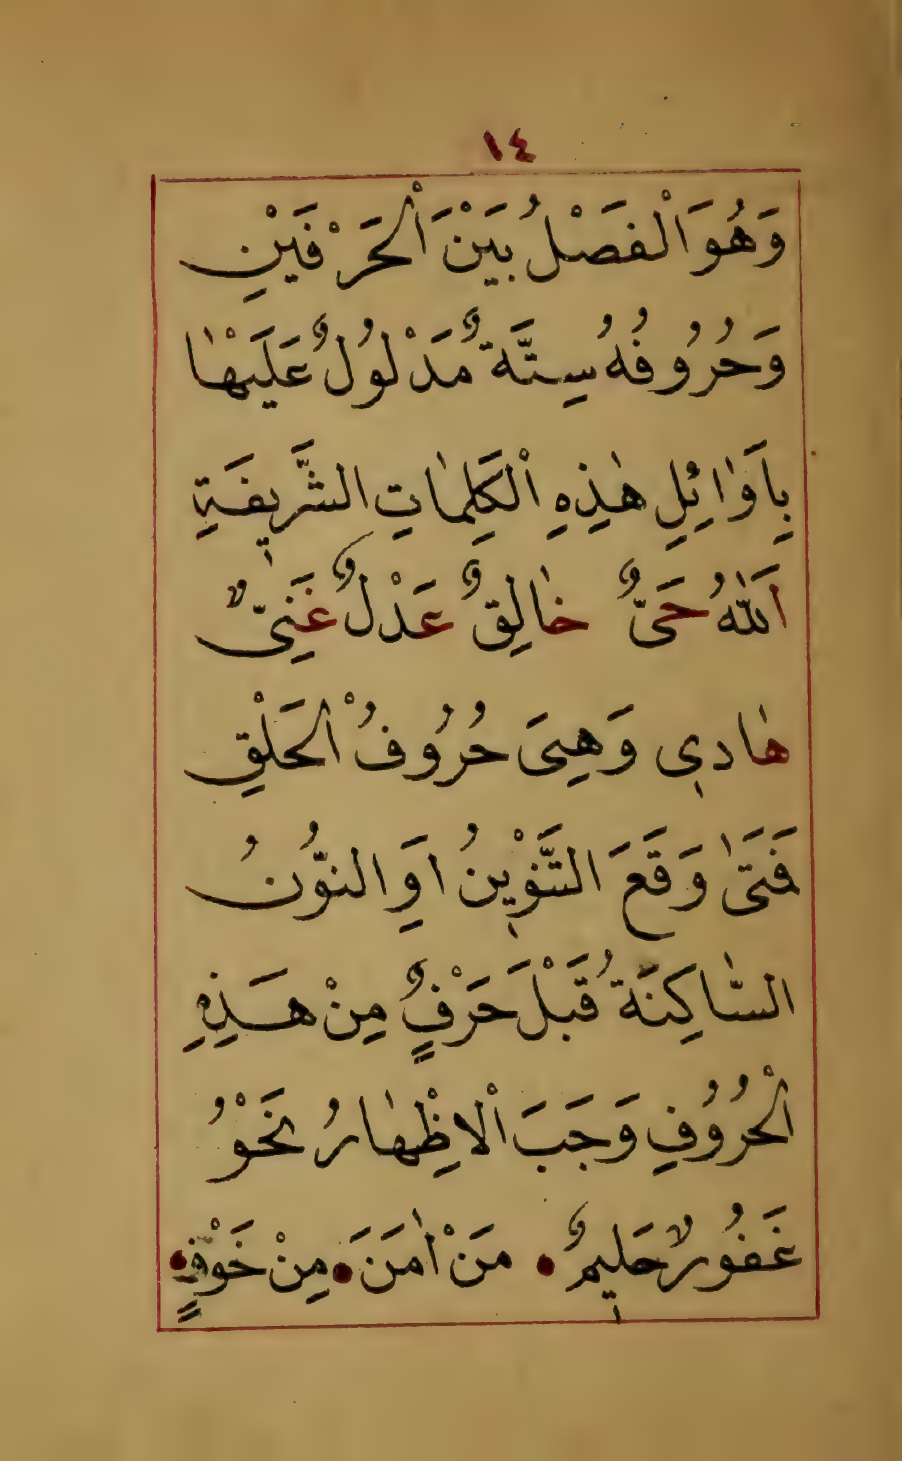 ١٤
وَهُوَ الْفَصْلُ بَيْنَ الْحَرْفَيْنِ
وَحُرُوفُهُ سِتَّةٌ مَدْلُولٌ عَلَيْهٰا
بِاَوٰائِلِ هٰذِهِ الْكَلِمٰاتِ الشَّرِيفَةِ
اَللّٰهُ حَىٌّ خٰالِقٌ عَدْلٌ غَنِىٌّ
هٰادِي وَهِىَ حُرُوفُ الْحَلْقِ
فَمَتٰى وَقَعَ التَّنْوِينُ اَوِ النُّونُ
السّٰاكِنَةُ قَبْلَ حَرْفٍ مِنْ هَذِهِ
الْحُرُوفِ وَجَبَ الْاِظْهٰارُ نَحْوُ
غَفُورٌ حَلِيمٌ • مَنْ اٰمَنَ • مِنْ خَوْفٍ •